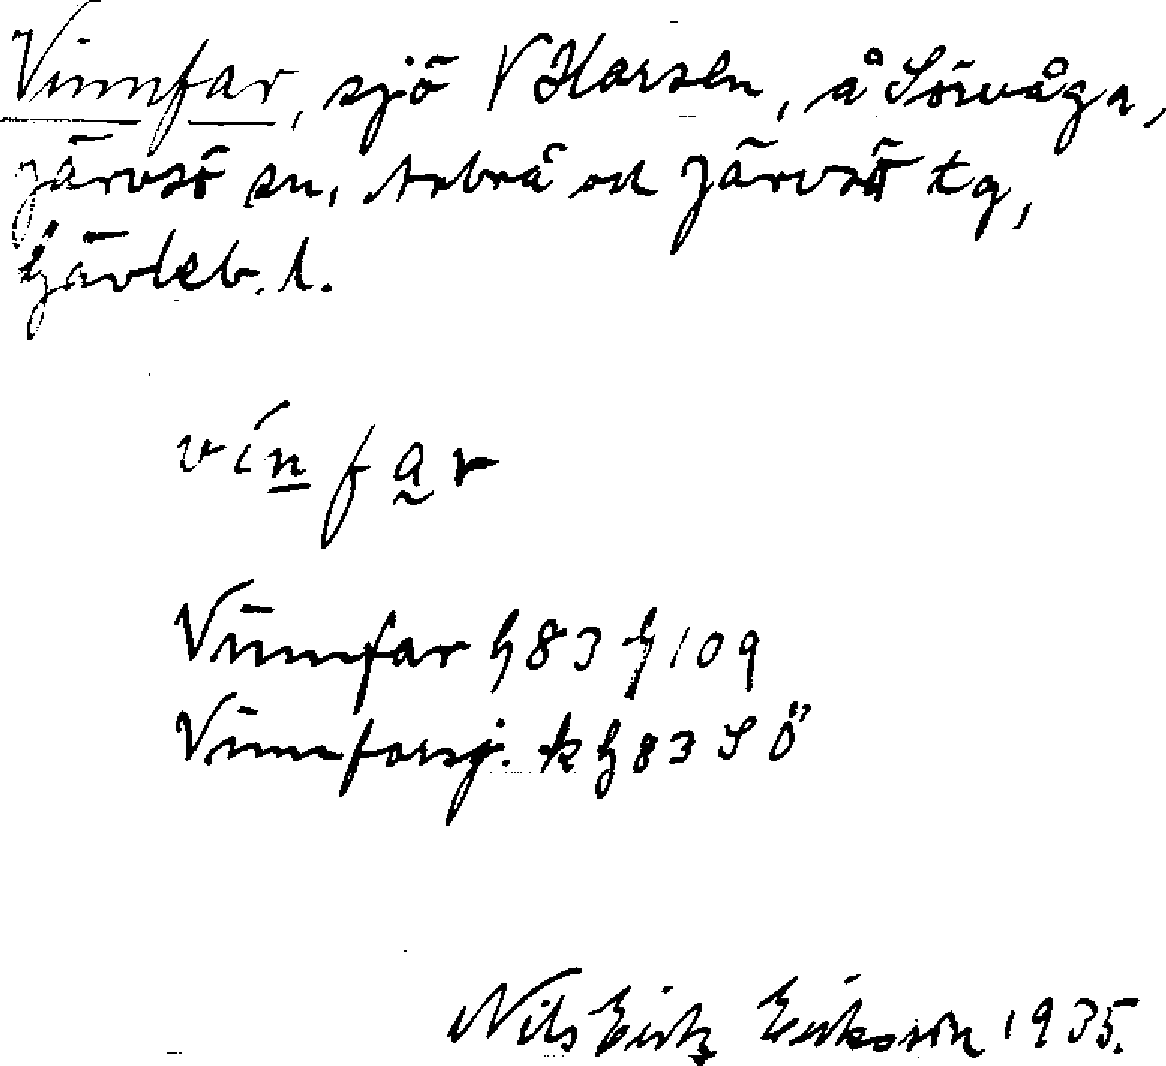 Vinnfar, sjö V Harsen, å Sörvåga,
Järvsö sn, Arbrå och Järvsö tg,
Gävleb. l.
vínfar
Vinnfar G83 G109
Vinnfarsj. k G83 S Ö
Nils Erik Eriksson 1935.